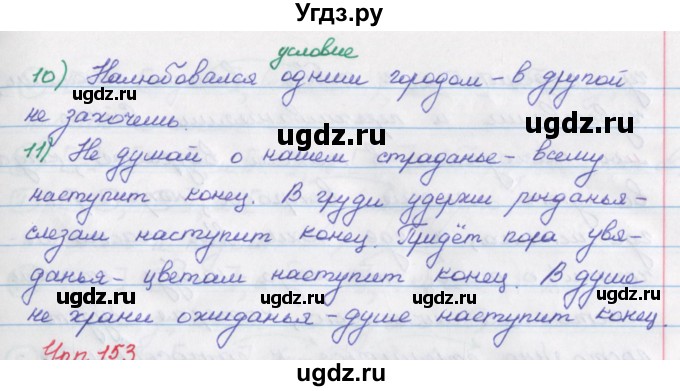 Угдз.ру
условие
10) Налюбовался одним городом – в другой
ugdz.ru ugdz.ru ugdz.ru
не захочешь.
11) Не думай о нашем страданье – всему
ugdz.ru ugdz.ru
наступит конец. В груди удержи рыданья –
слезам наступит конец. Придёт пора увя-
ugdz.ru ugdz.ru ugdz.ru
данья – цветам наступит конец. В душе
не храни ожиданья – душе наступит конец.
ugdz.ru ugdz.ru
Упр. 153
Угдз.ру